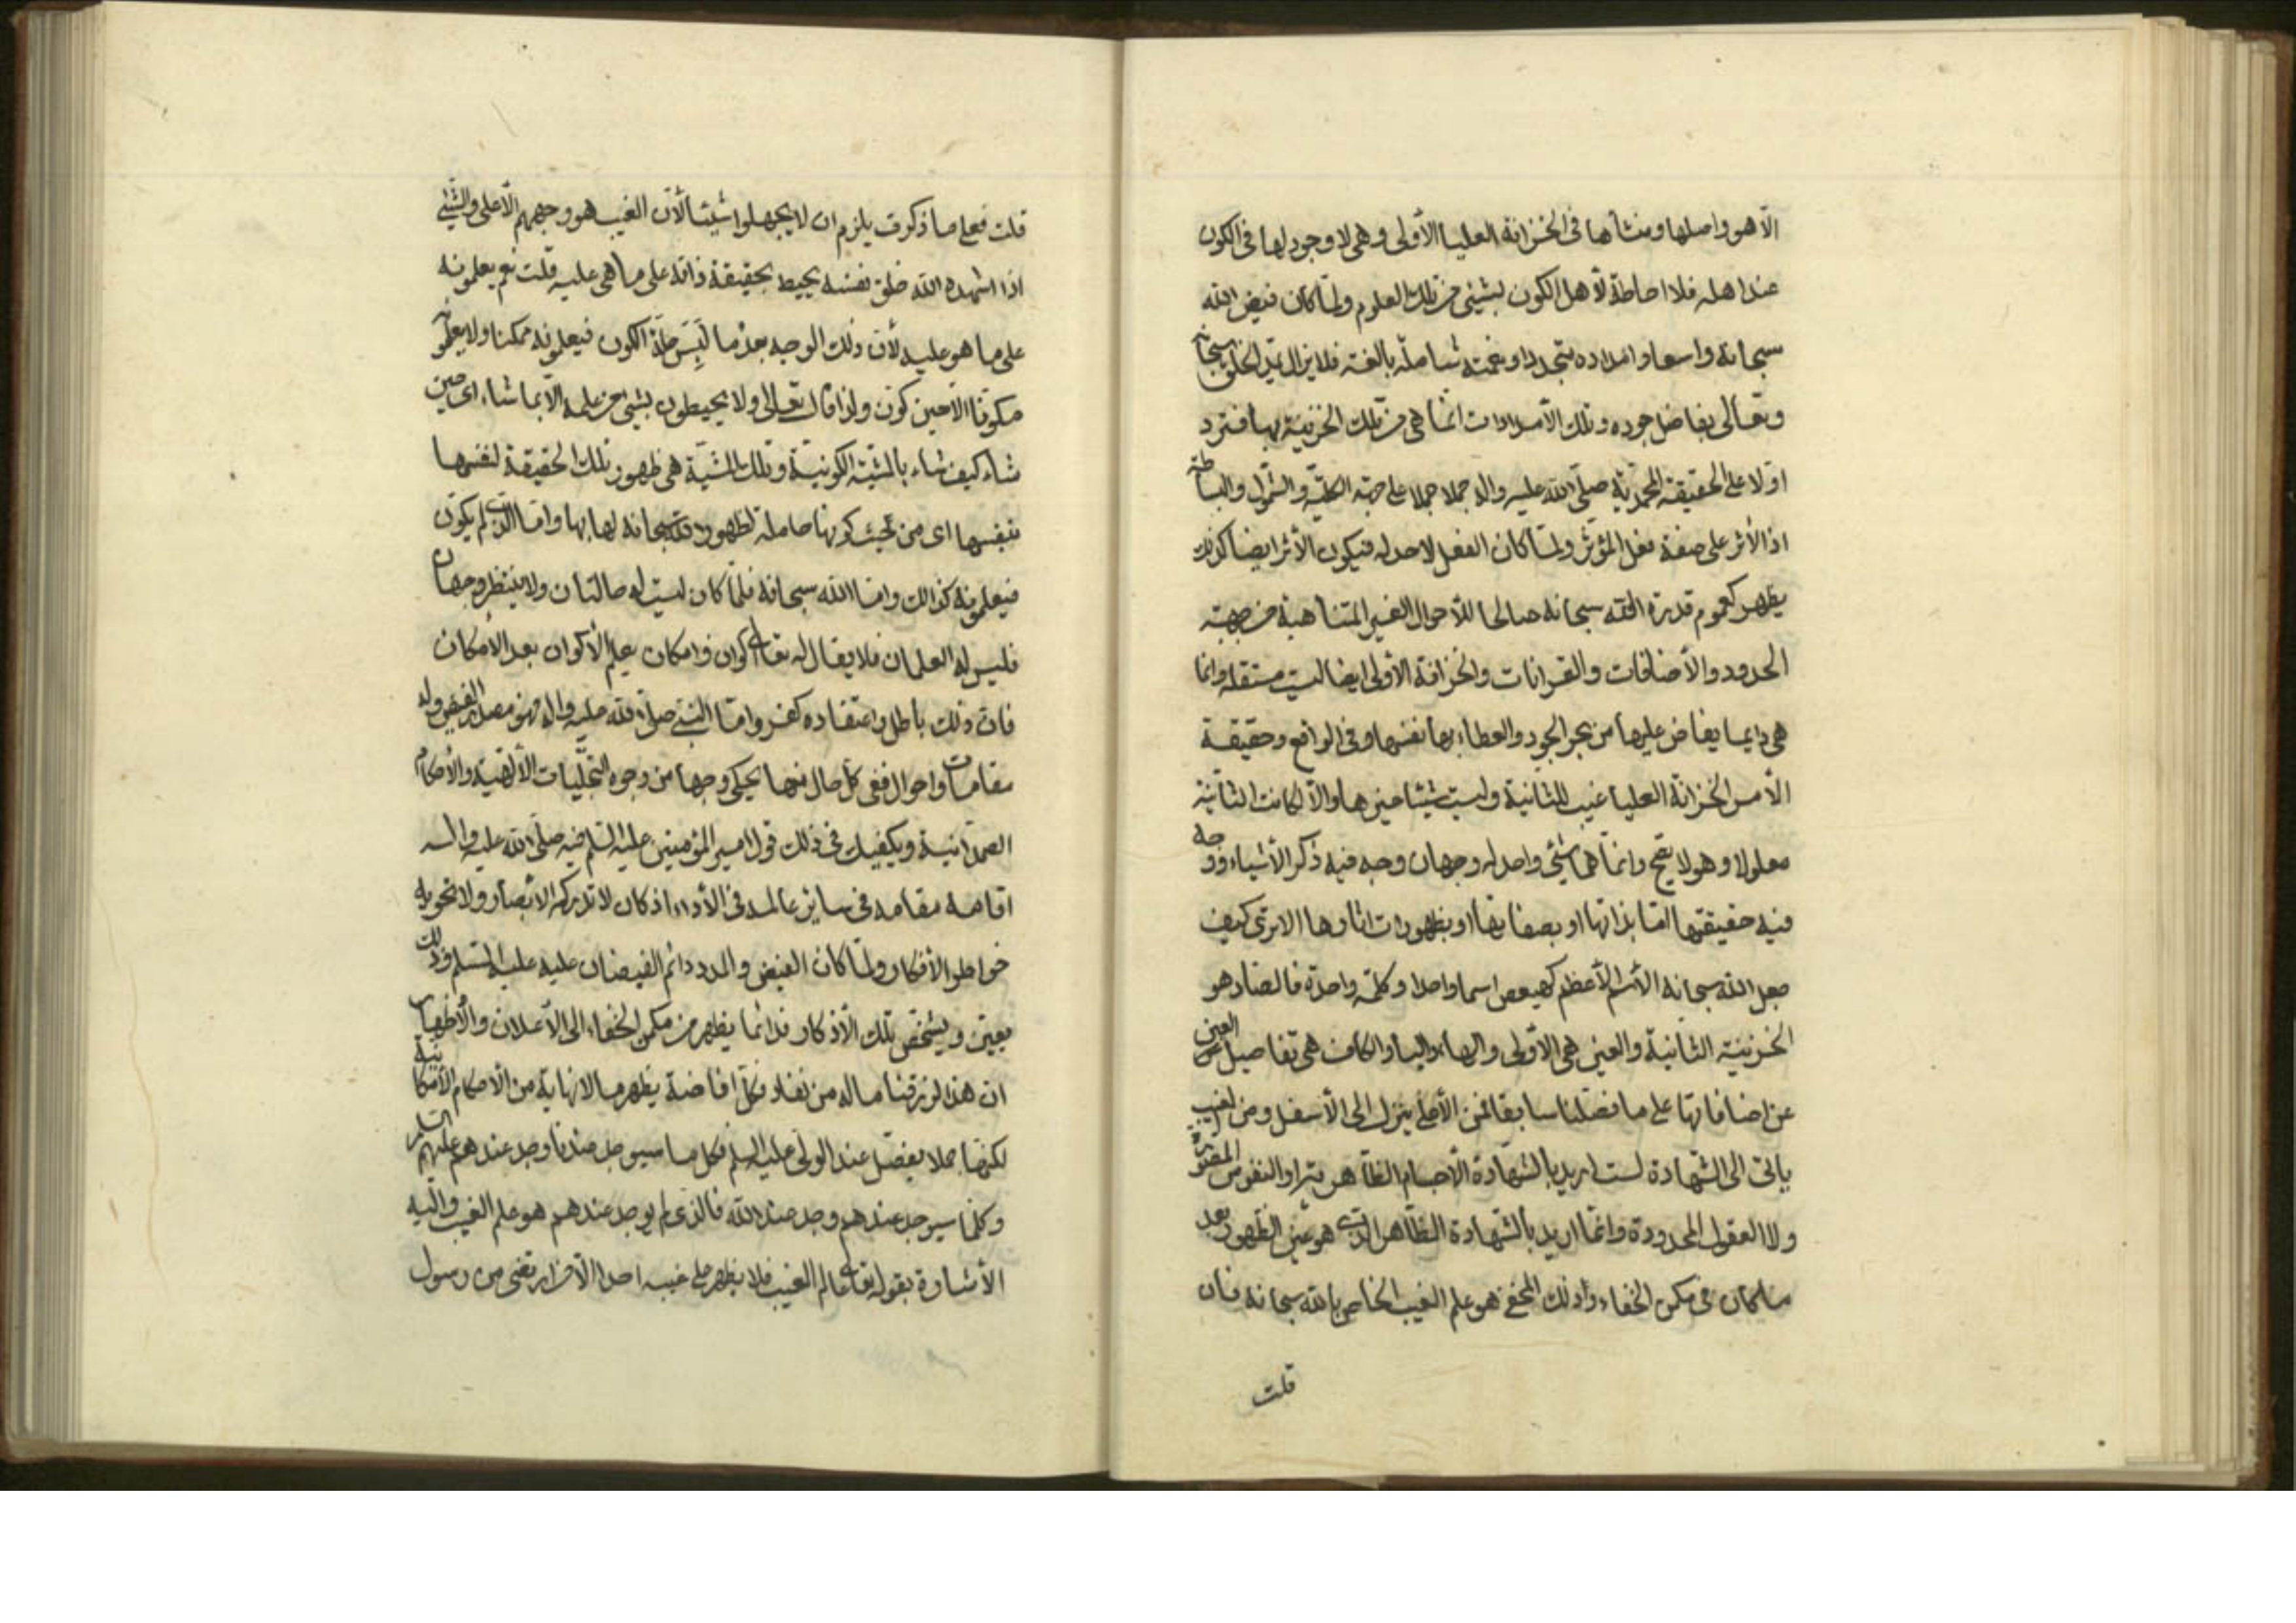 الّا هو واصلها ومنشأها فى الخزانة العليا الأولى وهى لا وجود لها فى الكون
عند اهله فلا احاطة لأهل الكون بشيئى من تلك العلوم ولمّا كان فيض الله
سبحانه واسعا وامداده متجددا ونعمته شاملة بالغة فلا يزال يمدّ الخلق سبحانه
وتعالى بفاضل جوده وتلك الأمدادات انّما هى من تلك الخزينة بها فترد
اوّلا على الحقيقة المحمّدية صلّى الله عليه واله جملا جملا على جهة الكليّة والشمول والبساطة
اذ الأثر على صفة فعل المؤثّر ولمّا كان الفعل لا حد له فيكون الأثر ايضا كذلك
يظهر كعموم قدرة الله سبحانه صالحا للأحوال الغير المتناهية من جهة
الحدود والأضافات والقرانات والخزانة الأولى ايضا ليست مستقلة وانّما
هى دايما يفاض عليها من بحر الجود والعطاء بها نفسها وفى الواقع وحقيقة
الأمر الخزانة العليا غيب للثانية وليست شيئا غيرها والّا لكانت الثانية
معلولا وهو لا يصح وانّما هما شيئى واحد له وجهان وجه فيه ذكر الأشياء ووجه
فيه حقيقتها امّا بذاتها او بصفاتها او بظهورات اثارها الا ترى كيف
جعل الله سبحانه الأسم الأعظم كهيعص اسما واحدا وكلمة واحدة فالصاد هو
الخزينة الثانية والعين هى الأولى والهاء والياء والكاف هى تفاصيل العين
عن اضافاتها على ما فصّلنا سابقا فمن الأعلى ينزل الى الأسفل ومن الغيب
يأتى الى الشهادة لست اريد بالشهادة الأجسام الظّاهرة والنفوس المصوّرة
ولا العقول المحدودة وانّما اريد بالشهادة الظّاهر الّذى هو عين الظهور بعد
ما كان فى مكمن الخفاء وذلك المخفى هو علم الغيب الخاص بالله سبحانه فان
قلت
قلت فعلى ما ذكرت يلزم ان لا يجهلوا شيئا لأن الغيب هو وجههم الأعلى والشيئى
اذا اشهده الله خلق نفسه يحيط بحقيقة ذاته على ما هى عليه قلت نعم يعلمونه
على ما هو عليه لأن ذلك الوجه بعد ما لَبِسَ حلّة الكون فيعلمونه ممكنا ولا يعلمونه
مكوّنا الّا حين كوّن ولذا قال تعالى ولا يحيطون بشيئ من علمه الّا بما شاء اى حين
شاء كيف شاء بالمشيّة الكونية وتلك المشيّة هى ظهور تلك الحقيقة لنفسها
بنفسها اى من حيث كونها حاملة لظهور الله سبحانه لها بها وامّا الّذى لم يكوّن
فيعلمونه كذلك وامّا الله سبحانه فلمّا كان ليست له حالتان ولا ينتظر وجهان
فليس له العلمان فلا يقال له تعالى اكوان وامكان يعلم الأكوان بعد الأمكان
فان ذلك باطل واعتقاده كفر وامّا النبى صلّى الله عليه واله فهو مصدر الفيض وله
مقامات واحوال ففى كل حال منها يحكى وجها من وجوه التجلّيات الألهية والأحكام
الصمدانية ويكفيك فى ذلك قول امير المؤمنين عليه السّلم فيه صلّى الله عليه واله
اقامه مقامه فى ساير عالمه فى الأداء اذ كان لا تدركه الأبصار ولا تحويه
خواطر الأفكار ولمّا كان الفيض والمدد دائم الفيضان عليه عليه السّلم وذلك
يعيّن ويشخّص تلك الأذكار فدائما يظهر من مكمن الخفاء الى الأعلان والأظهار
ان هذا لرزقنا ماله من نفاد وكل افاضة يظهر ما لا نهاية من الأحكام الأمكانية
لكنّها جملا يفصّل عند الولّى عليه السلم فكل ما سيوجد عندنا وجد عندهم عليهم السّلم
وكلّما سيوجد عندهم وجد عند الله فالّذى لم يوجد عندهم هو علم الغيب واليه
الأشارة بقوله تعالى عالم الغيب فلا يظهر على غيبه احدا الّا من ارتضى من رسول